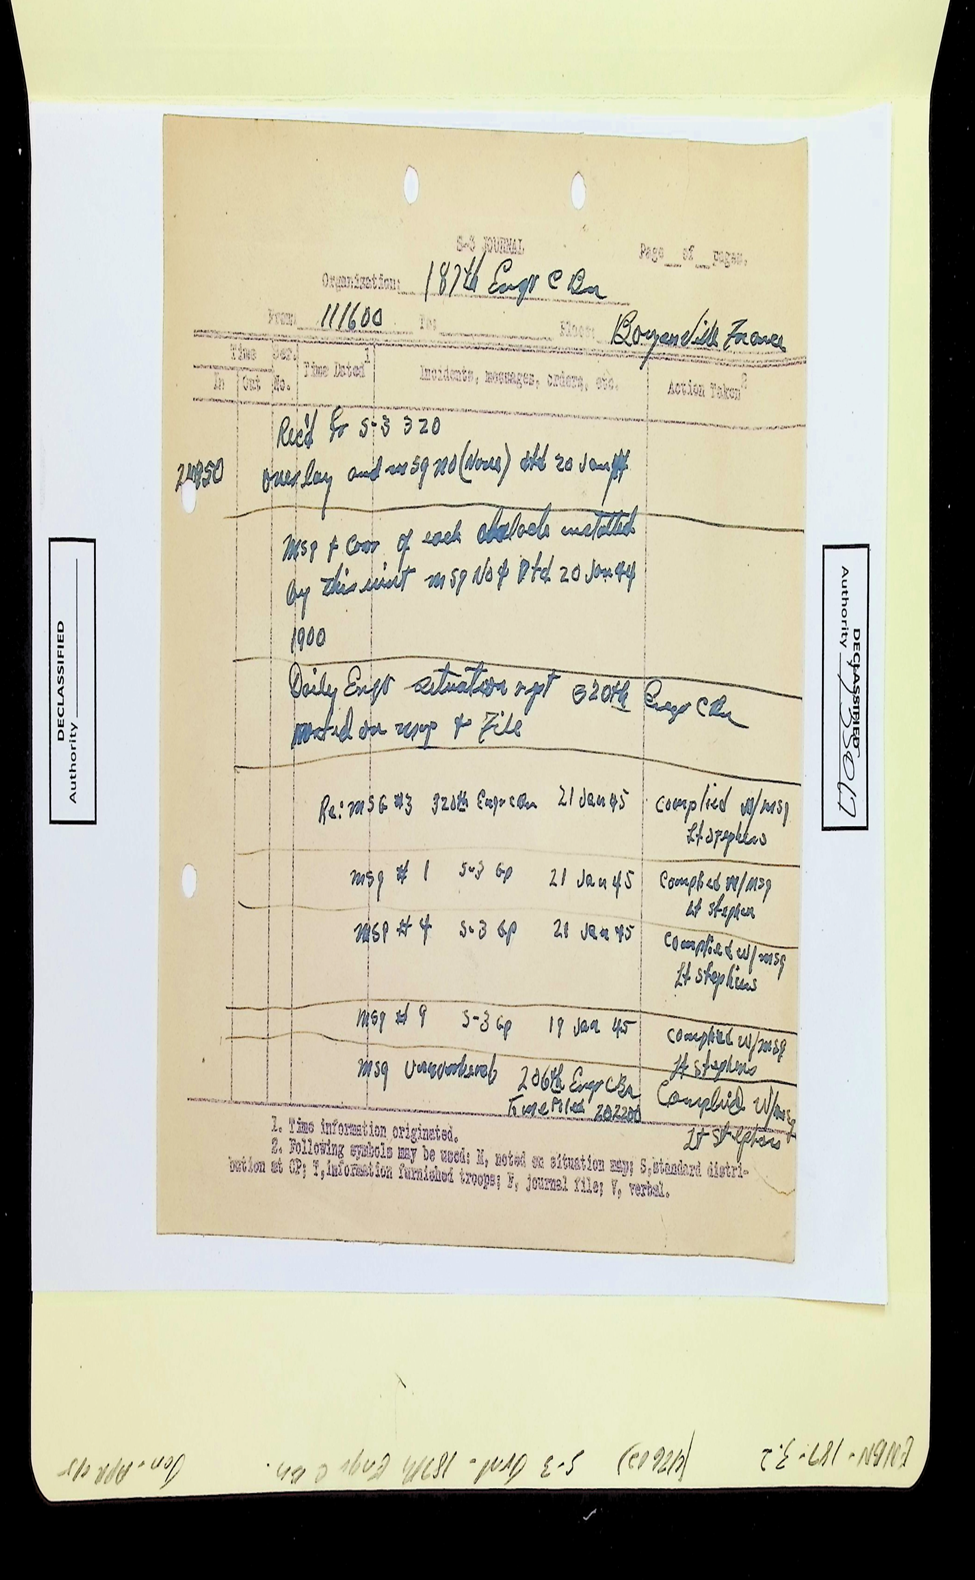 S-3 JOURNAL
Page__of__pages.
Organization: 187th Engr C Bn
From: 111600 To: Place: France
Time Ser. Time Dated 1 Incidents, messages, orders, etc. Action Taken 2
In Out No.
Rec'd fr S-3 320
Overlay and msg no (None) dtd 20 Jan
Msg & of each installed
by this unit msg No 4 Dtd 20 Jan 44
1900
Daily Engr situation rpt 320th Engr C Bn
noted on map & File
Re: MSG #3 320th Engr C Bn 21 Jan 45 Complied W/msg
Lt Stephens
Msg # 1 S-3 Gp 21 Jan 45 Complied W/msg
Lt Stephen
Msg # 4 S-3 Gp 20 Jan 45 Complied W/msg
Lt Stephens
Msg # 9 S-3 Gp 19 Jan 45 Complied W/msg
Lt Stephens
Msg Unnumbered 206th Engr C Bn Complied W/msg
Time Filed 202200 Lt Stephens
1. Time information originated.
2. Following symbols may be used: M, noted on situation map; S, standard distri-
bution at CP; T, information furnished troops; F, journal file; V, verbal.
DECLASSIFIED
Authority
DECLASSIFIED
Authority
ENBN-187-3.2 S-3 Jrnl - 187th Engr C Bn. Jan-Apr 45